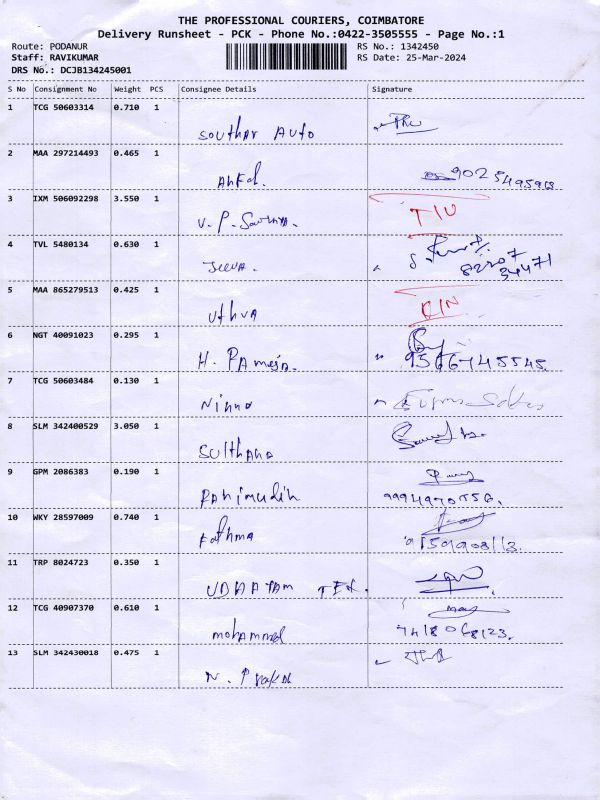 THE PROFESSIONAL COURIERS, COIMBATORE
Delivery Runsheet - PCK - Phone No.:0422-3505555 - Page No.:1
Route: PODANUR RS No.: 1342450
Staff: RAVIKUMAR RS Date: 25-Mar-2024
DRS No.: DCJB134245001
S No Consignment No Weight PCS Consignee Details Signature
1 TCG 50603314 0.710 1
Southar Auto
2 MAA 297214493 0.465 1
3 IXM 506092298 3.550 1
V. P.
4 TVL 5480134 0.630 1
Jeeva.
5 MAA 865279513 0.425 1
Uthva
6 NGT 40091023 0.295 1
H. Rameja. 9566745545.
7 TCG 50603484 0.130 1
8 SLM 342400529 3.050 1
Sulthana
9 GPM 2086383 0.190 1
Rahimudin
10 WKY 28597009 0.740 1
Fathma
11 TRP 8024723 0.350 1
UDHAYAM TEX.
12 TCG 40907370 0.610 1
mohammed 7418068123.
13 SLM 342430018 0.475 1
N. Prakash